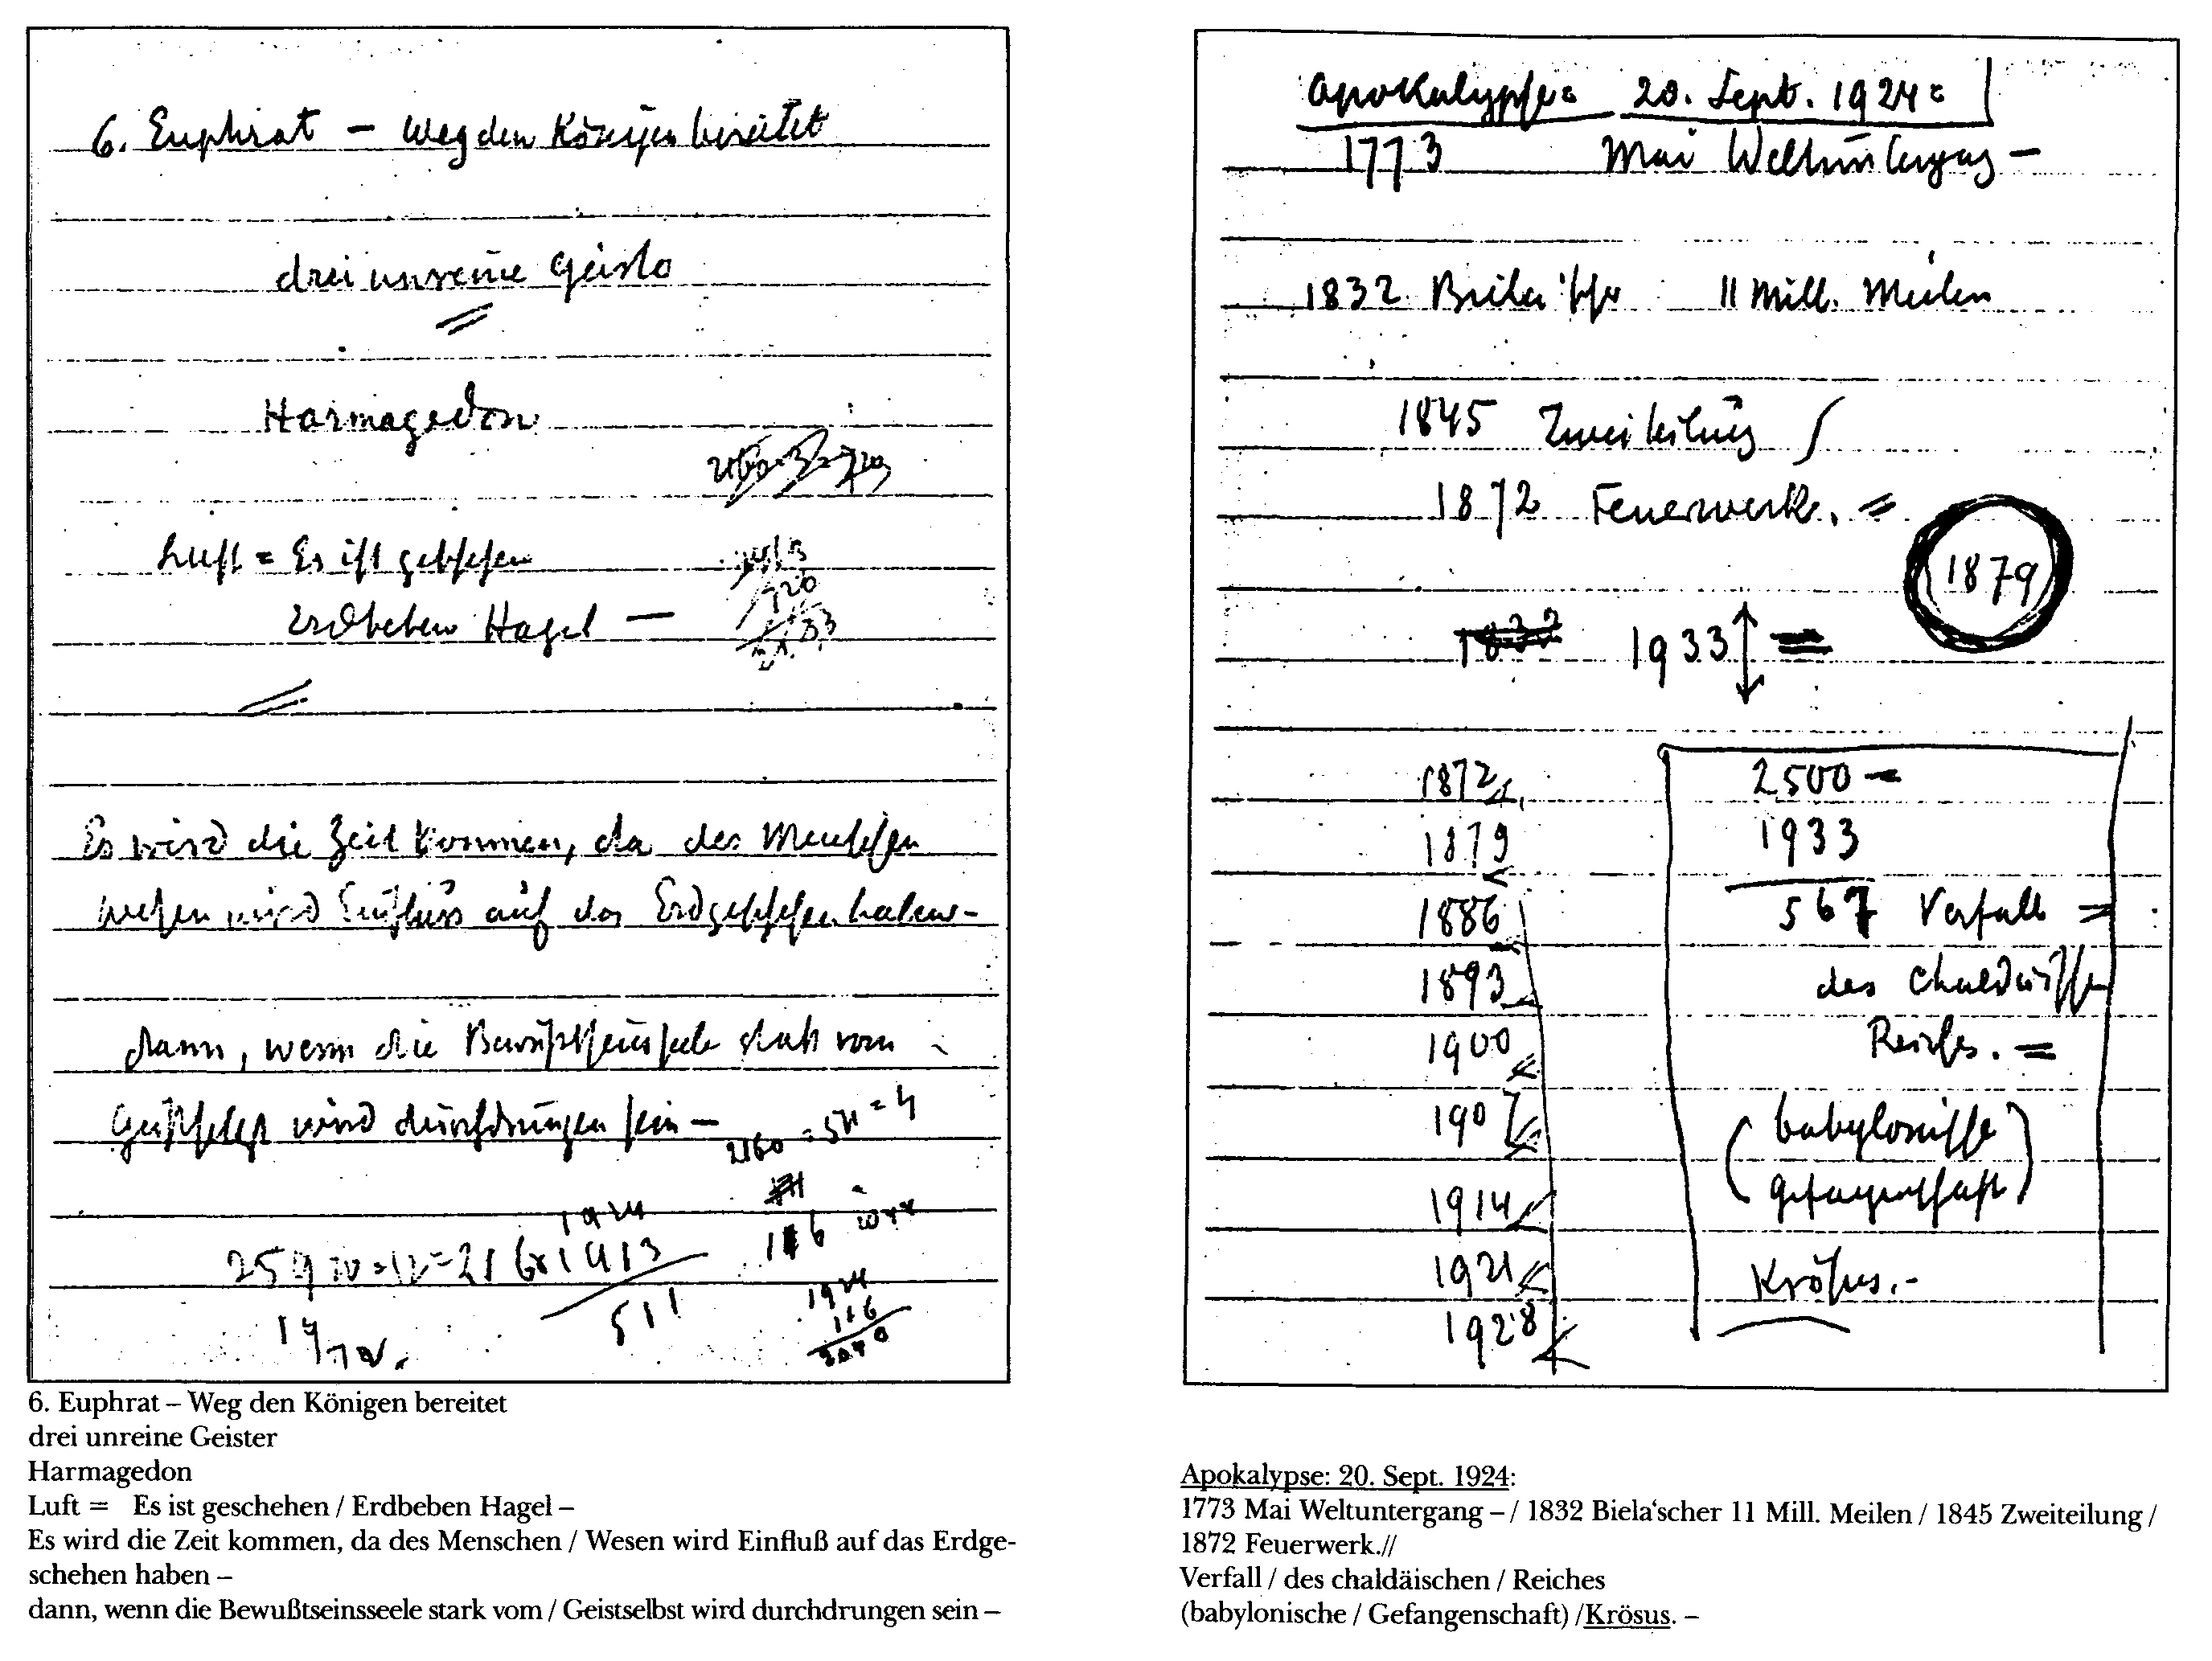 6. Euphrat – Weg den Königen bereitet
drei unreine Geister
Harmagedon
Luft = Es ist geschehen
Erdbeben Hagel –
Es wird die Zeit kommen, da des Menschen
Wesen wird Einfluß auf das Erdgeschehen haben –
dann, wenn die Bewußtseinsseele stark vom
Geistselbst wird durchdrungen sein –
1924
1913
511
116
1924
116
6. Euphrat – Weg den Königen bereitet
drei unreine Geister
Harmagedon
Luft = Es ist geschehen / Erdbeben Hagel –
Es wird die Zeit kommen, da des Menschen / Wesen wird Einfluß auf das Erdge-
schehen haben –
dann, wenn die Bewußtseinsseele stark vom / Geistselbst wird durchdrungen sein –
Apokalypse: 20. Sept. 1924:
1773 Mai Weltuntergang –
1832 Biela'scher 11 Mill. Meilen
1845 Zweiteilung
1872 Feuerwerk. =
1879
1832 1933
1872
1879
1886
1893
1900
1907
1914
1921
1928
2500 –
1933
567 Verfall =
des chaldäischen
Reiches. =
(babylonische
Gefangenschaft)
Krösus. –
Apokalypse: 20. Sept. 1924:
1773 Mai Weltuntergang – / 1832 Biela‘scher 11 Mill. Meilen / 1845 Zweiteilung /
1872 Feuerwerk.//
Verfall / des chaldäischen / Reiches
(babylonische / Gefangenschaft) /Krösus. –